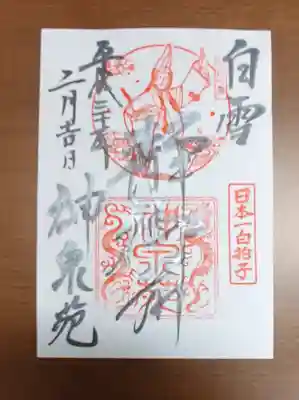 白雪
日本一白拍子
静御前
平成三十年
二月吉日
神泉苑